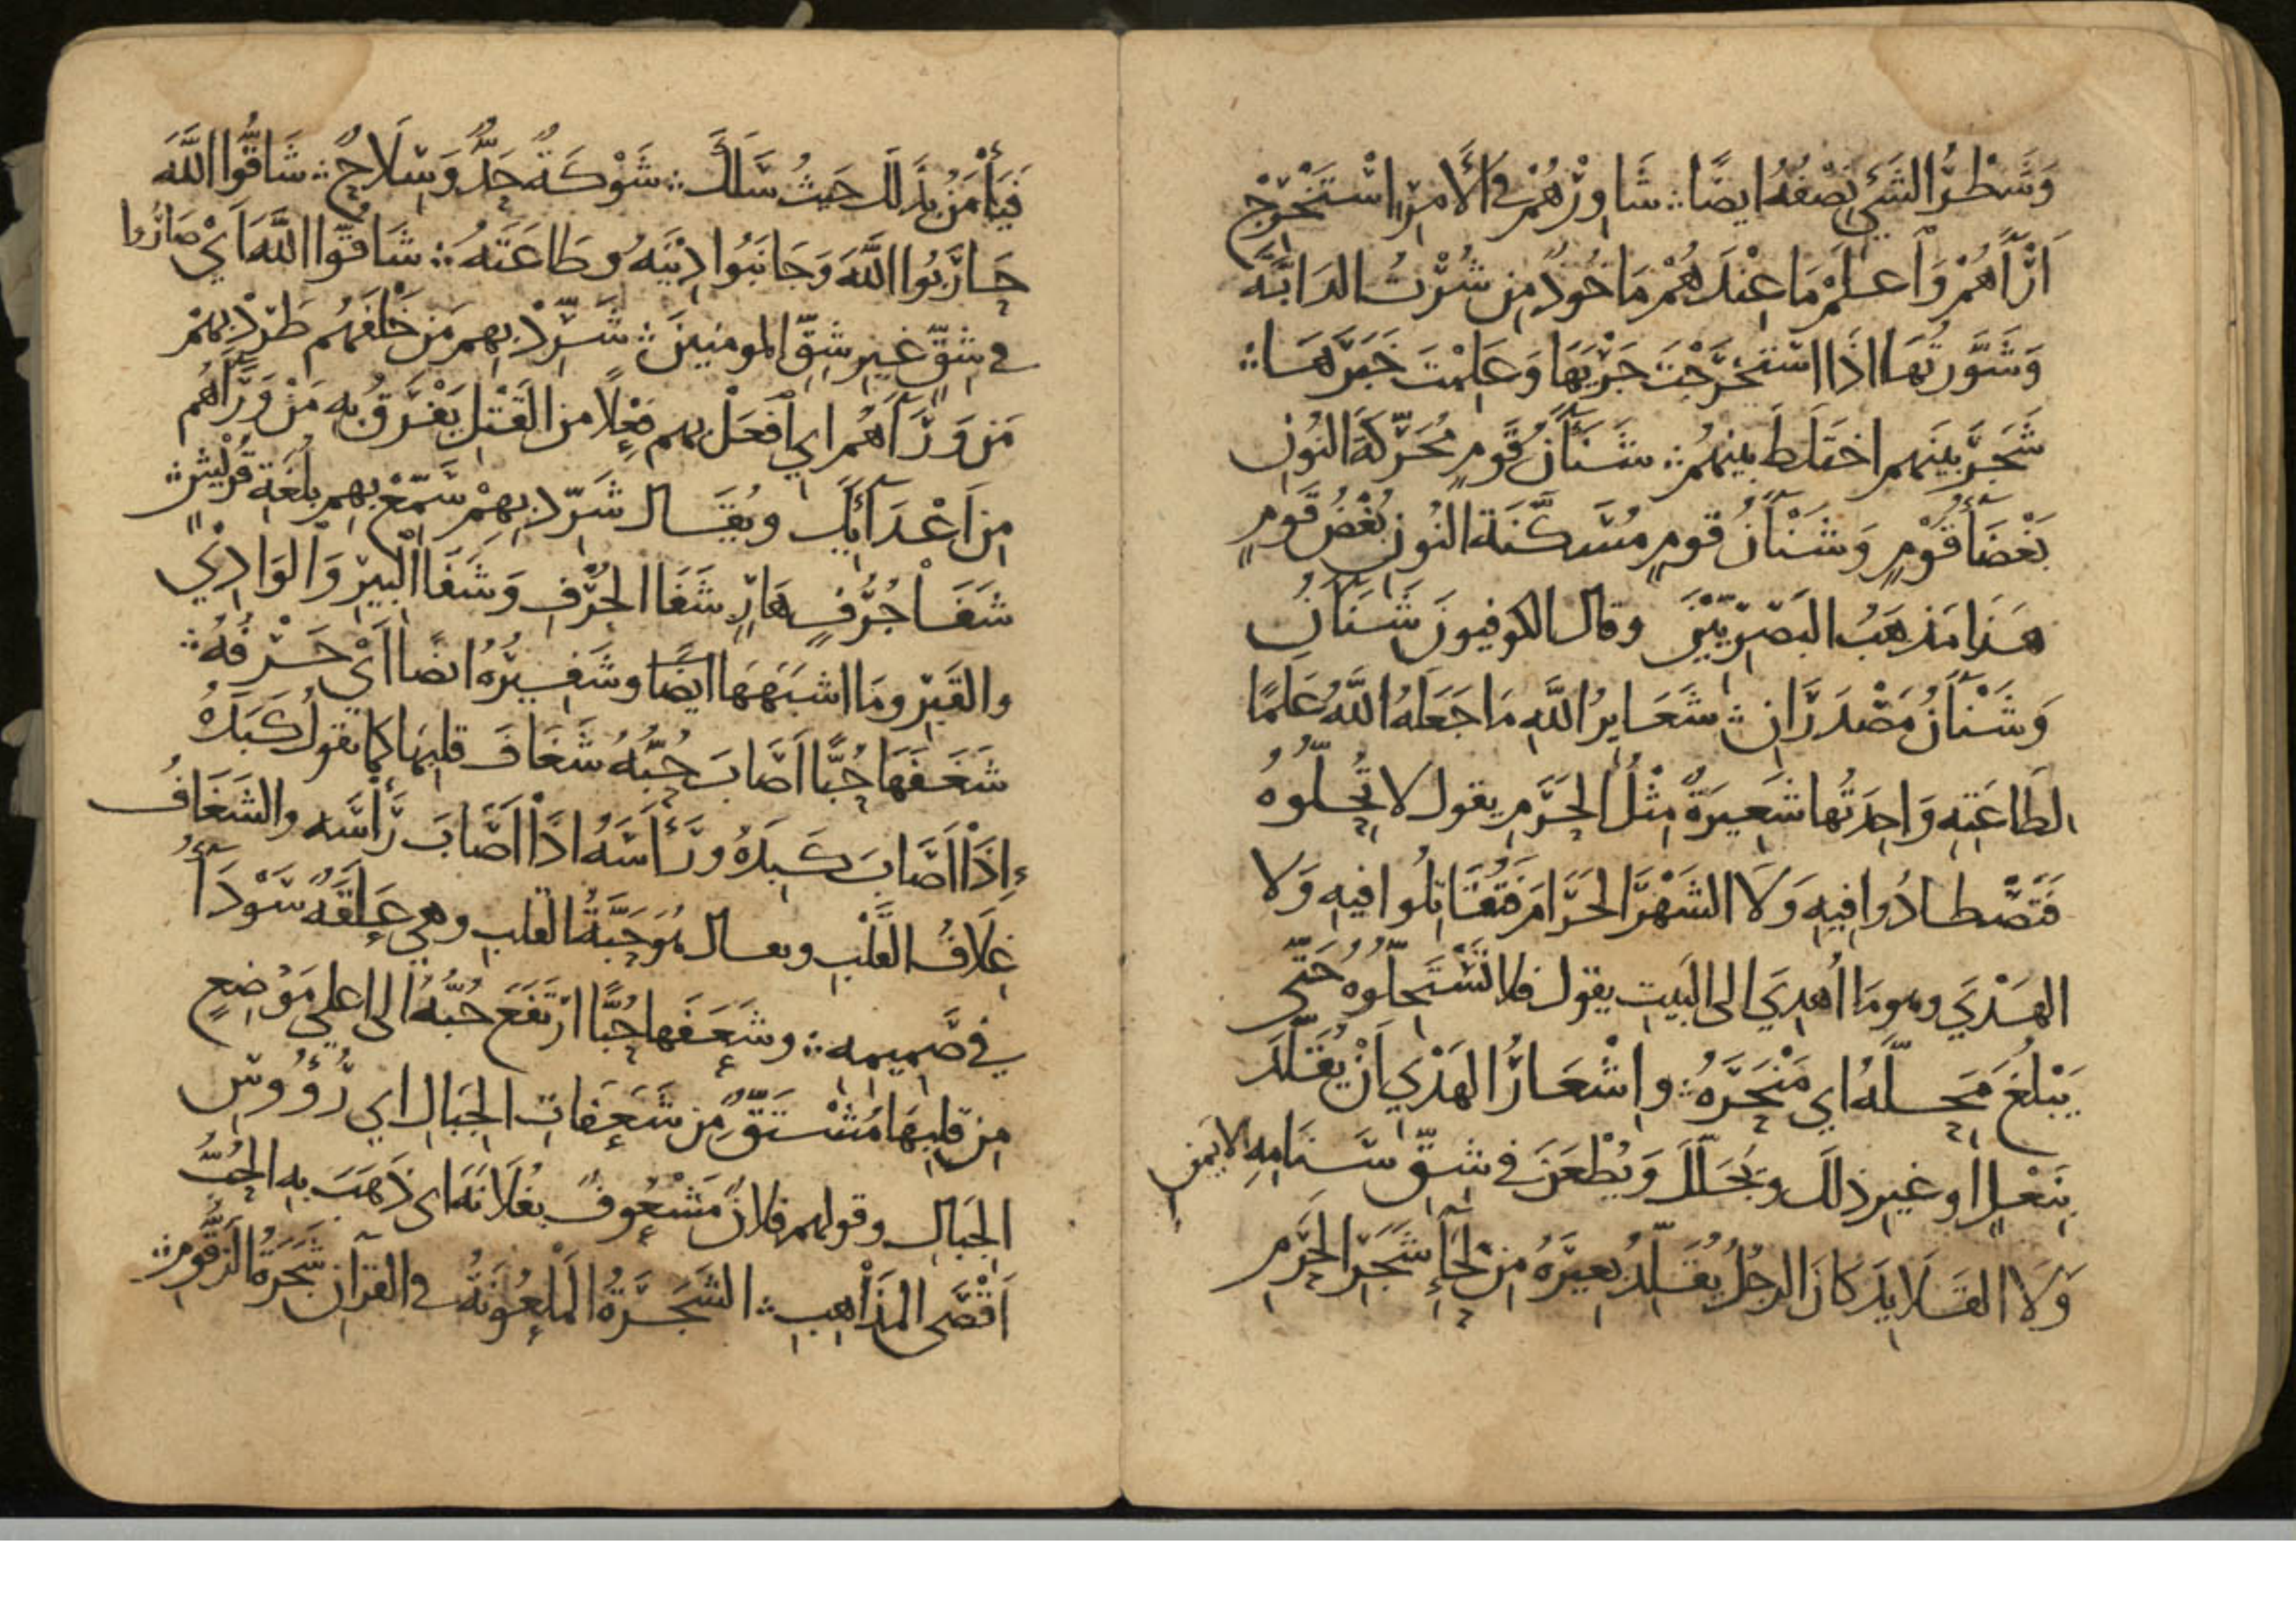 وَشَطْرُ الشَيْءِ نِصْفُهُ ايضًا ؞ شَاوِرْهُمْ في الأَمْرِ اسْتَخْرِجْ
اَرَآءَهُمْ وَاعلَمْ مَا عِنْدَهُمْ مَاخُوذٌ مِن شُرْتُ الدَابَّةَ
وَشَوَّرتُهَا اذَا اسْتَخرَجْتَ جَرْيَهَا وَعَلِمْتَ خَبَرَهَا ؞
شَجَرَ بَينَهم اختَلَط بينهُم ؞ شَنَآَنُ قَومٍ مُحَرَّكَةَ النُونِ
بَغْضَآءُ قَوْمٍ وَشَنْآنُ قومٍ مُسَكَّنَة النُونِ بُغْضُ قَومٍ
هَذَا مَذهَبُ البَصْرِيّيْنَ وقال الكوفيونَ شَنَآنُ
وَشَنْآنُ مَصْدَرَانِ ؞ شَعَايِرُ اللَّهِ مَا جَعَلَهُ اللَّهُ عَلَمًا
لطَاعَتِهِ وَاحِدَتُها شَعِيرَةٌ مِثْلُ الحَرَمِ يقول لا تُحِلّوُهُ
فَتَصْطادُوا فِيهِ وَلَا الشَهْرَ الحَرَامَ فَتُقَاتِلُوا فيهِ وَلا
الهَدْيَ وهو مَا اُهدِيَ الى البَيتِ يقول فلا تَسْتَحِلّوُهُ حَتّى
يَبْلُغَ مَحِلَّهُ اي مَنْحَرَهُ ؞ واِشْعَارُ الهَدْيِ اَنْ يُقَلَّدَ
بِنَعْلٍ او غيرِ ذلك ويُجَلَّلَ وَيُطْعَنَ في شِقِّ سَنَامِهِ الايمَنِ
وَلَا القَلايِدَ كانَ الرجُلُ يُقَلِّدُ بَعِيرَهُ مِن لِحَآءِ شَجَرِ الحَرَمِ
فَيَأْمَنُ بذَلك حَيثُ سَلَكَ ؞ شَوْكَةٌ حَدٌّ وَسِلَاحٌ ؞ شَاقُّوا اللَّهَ
حَارَبُوا اللَّهَ وَجَانَبُوا دِينَهُ وطَاعَتَهُ ؞ شَاقُّوا اللَّهَ اَيْ صَارُوا
في شِقٍّ غيرِ شِقِّ المومِنينَ ؞ شَرِّدْ بِهِم مَن خَلْفَهُم طَرِّدْ بِهِمْ
مَن وَرَآءَهُم اي افْعَلْ بهم فِعْلًا من القَتْلِ يَفْرَقُ بِهِ مَنْ وَرَآءَهُم
مِن اَعْدَآئِكَ ويُقَال شَرِّدْ بِهِمْ سَمِّعْ بِهِم بلُغَةِ قُرَيْشٍ ؞
شَفَا جُرُفٍ هَارٍ شَفَا الجُرُفِ وَشَفَا البيرِ وَالوَادِي
والقَبْرِ ومَا اشبَهَهَا ايضًا وشَفِيرُهُ ايضًا اَيْ حَرْفُهُ ؞
شَغَفَهَا حُبًّا اَصَابَ حُبُّهُ شَغَافَ قلبِهَا كما تقول كَبَدَهُ
اِذَا اَصَابَ كَبِدَهُ ورَأَسَهُ اذَا اَصَابَ رَأْسَه والشَغَافُ
غِلَافُ القَلْبِ ويقال هُوَ حَبَّةُ القلبِ وهي عَلَقَةٌ سَوْدَآءُ
في صَمِيمِهِ ؞ وشَعَفَها حُبًّا ارْتَفَعَ حُبُّهُ الى اعلى مَوْضِعٍ
مِن قلبِهَا مُشْتَقٌّ مِن شَعَفَاتِ الجِبَالِ اي رُؤُوسِ
الجِبَالِ وقولهم فلانٌ مَشْعُوفٌ بفُلَانَةَ اي ذَهَبَ بِهِ الحُبُّ
اَقْصَى المَذَاهِبِ ؞ الشَجَرَةُ المَلْعُونَةُ في القرآنِ شَجَرَةُ الزَقُّومِ ؞